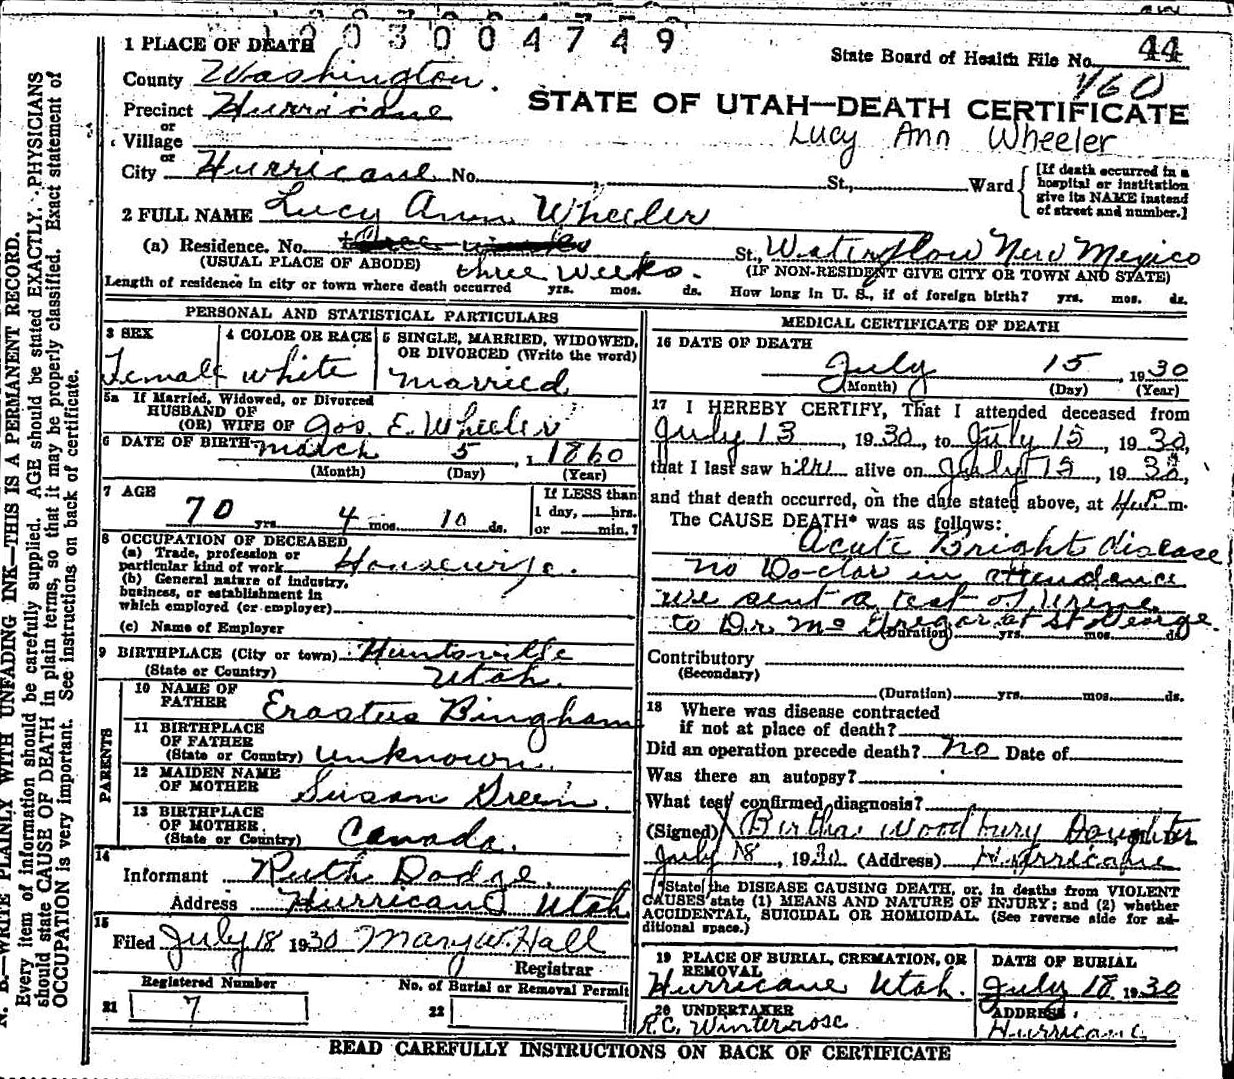 1 0 0 3 0 0 4 7 4 9
1 PLACE OF DEATH
State Board of Health File No. 44
160
County Washington.
Precinct Hurricane
STATE OF UTAH—DEATH CERTIFICATE
or
Village
Lucy Ann Wheeler
or
City Hurricane No. St., Ward
[If death occurred in a hospital or institution give its NAME instead of street and number.]
2 FULL NAME Lucy Ann Wheeler
(a) Residence. No. three weeks St., Waterflow New Mexico
(USUAL PLACE OF ABODE) three weeks. (IF NON-RESIDENT GIVE CITY OR TOWN AND STATE)
Length of residence in city or town where death occurred yrs. mos. ds. How long in U. S., if of foreign birth? yrs. mos. ds.
PERSONAL AND STATISTICAL PARTICULARS
3 SEX
Female
4 COLOR OR RACE
white
5 SINGLE, MARRIED, WIDOWED, OR DIVORCED (Write the word)
married
5a If Married, Widowed, or Divorced
HUSBAND OF
(OR) WIFE OF Jos. E. Wheeler
6 DATE OF BIRTH march 5, 1860
(Month) (Day) (Year)
7 AGE
70 yrs. 4 mos. 10 ds.
If LESS than
1 day, hrs.
or min.?
8 OCCUPATION OF DECEASED
(a) Trade, profession or
particular kind of work Housewife.
(b) General nature of industry,
business, or establishment in
which employed (or employer)
(c) Name of Employer
9 BIRTHPLACE (City or town) Huntsville
(State or Country) Utah.
PARENTS
10 NAME OF
FATHER Erastus Bingham
11 BIRTHPLACE
OF FATHER
(State or Country) unknown.
12 MAIDEN NAME
OF MOTHER Susan Green.
13 BIRTHPLACE
OF MOTHER
(State or Country) Canada.
14
Informant Ruth Dodge.
Address Hurricane Utah
15
Filed July 18 1930 Mary W. Hall
Registrar
Registered Number
No. of Burial or Removal Permit
21 7
22
MEDICAL CERTIFICATE OF DEATH
16 DATE OF DEATH
July 15, 1930
(Month) (Day) (Year)
17 I HEREBY CERTIFY, That I attended deceased from
July 13, 1930, to July 15 1930,
that I last saw her alive on July 15, 1930,
and that death occurred, on the date stated above, at m.
The CAUSE DEATH* was as follows:
Acute Bright disease
no Doctor in attendance
we sent a test of Urine
to Dr. McGregor at St George.
(Duration) yrs. mos. ds.
Contributory
(Secondary)
(Duration) yrs. mos. ds.
18 Where was disease contracted
if not at place of death?
Did an operation precede death? no Date of
Was there an autopsy?
What test confirmed diagnosis?
(Signed) X Birtha Woodbury Daughter
July 18, 1930 (Address) Hurricane
*State the DISEASE CAUSING DEATH, or, in deaths from VIOLENT
CAUSES state (1) MEANS AND NATURE OF INJURY; and (2) whether
ACCIDENTAL, SUICIDAL OR HOMICIDAL. (See reverse side for ad-
ditional space.)
19 PLACE OF BURIAL, CREMATION, OR
REMOVAL
Hurricane Utah.
DATE OF BURIAL
July 18 1930
20 UNDERTAKER
R.C. Winterrose
ADDRESS
Hurricane
READ CAREFULLY INSTRUCTIONS ON BACK OF CERTIFICATE
N. B.—WRITE PLAINLY WITH UNFADING INK—THIS IS A PERMANENT RECORD.
Every item of information should be carefully supplied. AGE should be stated EXACTLY. PHYSICIANS
should state CAUSE OF DEATH in plain terms, so that it may be properly classified. Exact statement of
OCCUPATION is very important. See instructions on back of certificate.